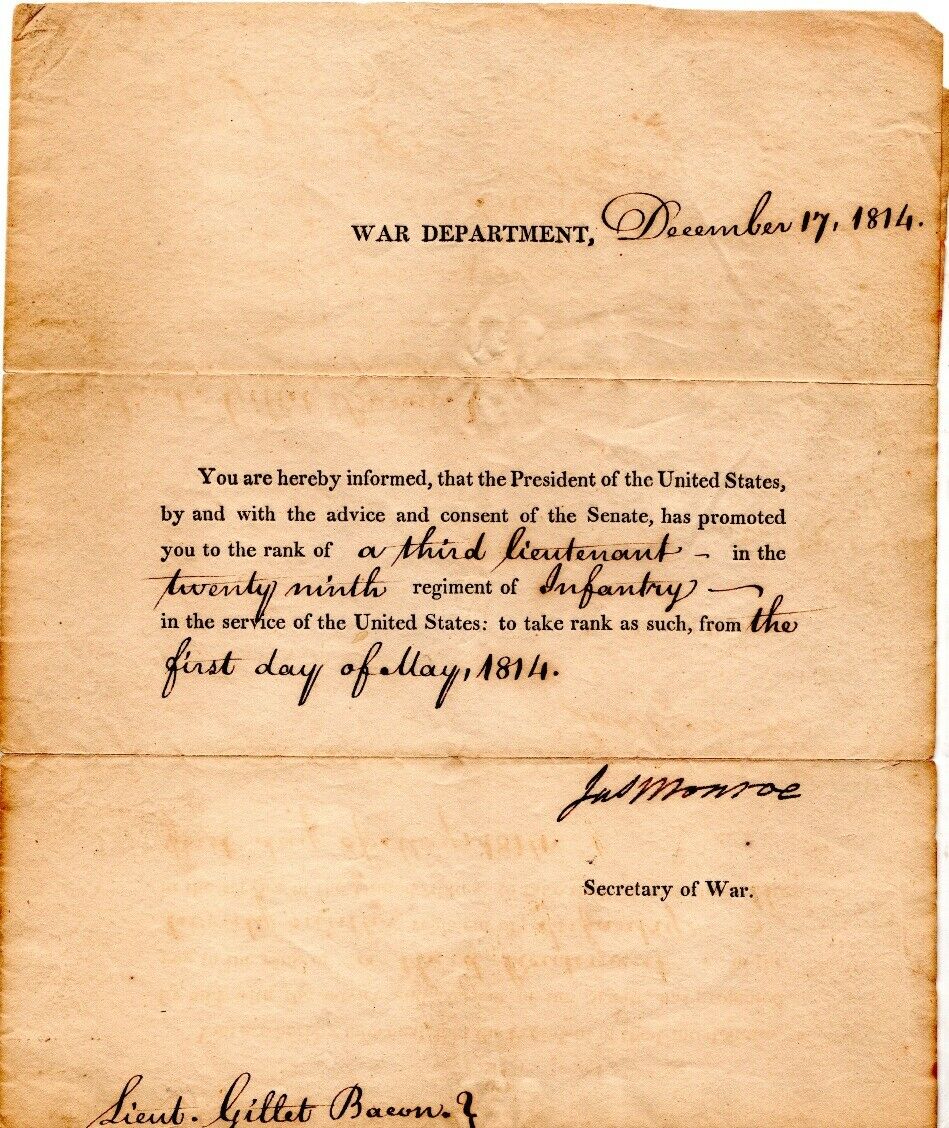 WAR DEPARTMENT, December 17, 1814.
You are hereby informed, that the President of the United States,
by and with the advice and consent of the Senate, has promoted
you to the rank of a third lieutenant - in the
twenty ninth regiment of Infantry —
in the service of the United States: to take rank as such, from the
first day of May, 1814.
Jas Monroe
Secretary of War.
Lieut. Gillet Bacon.